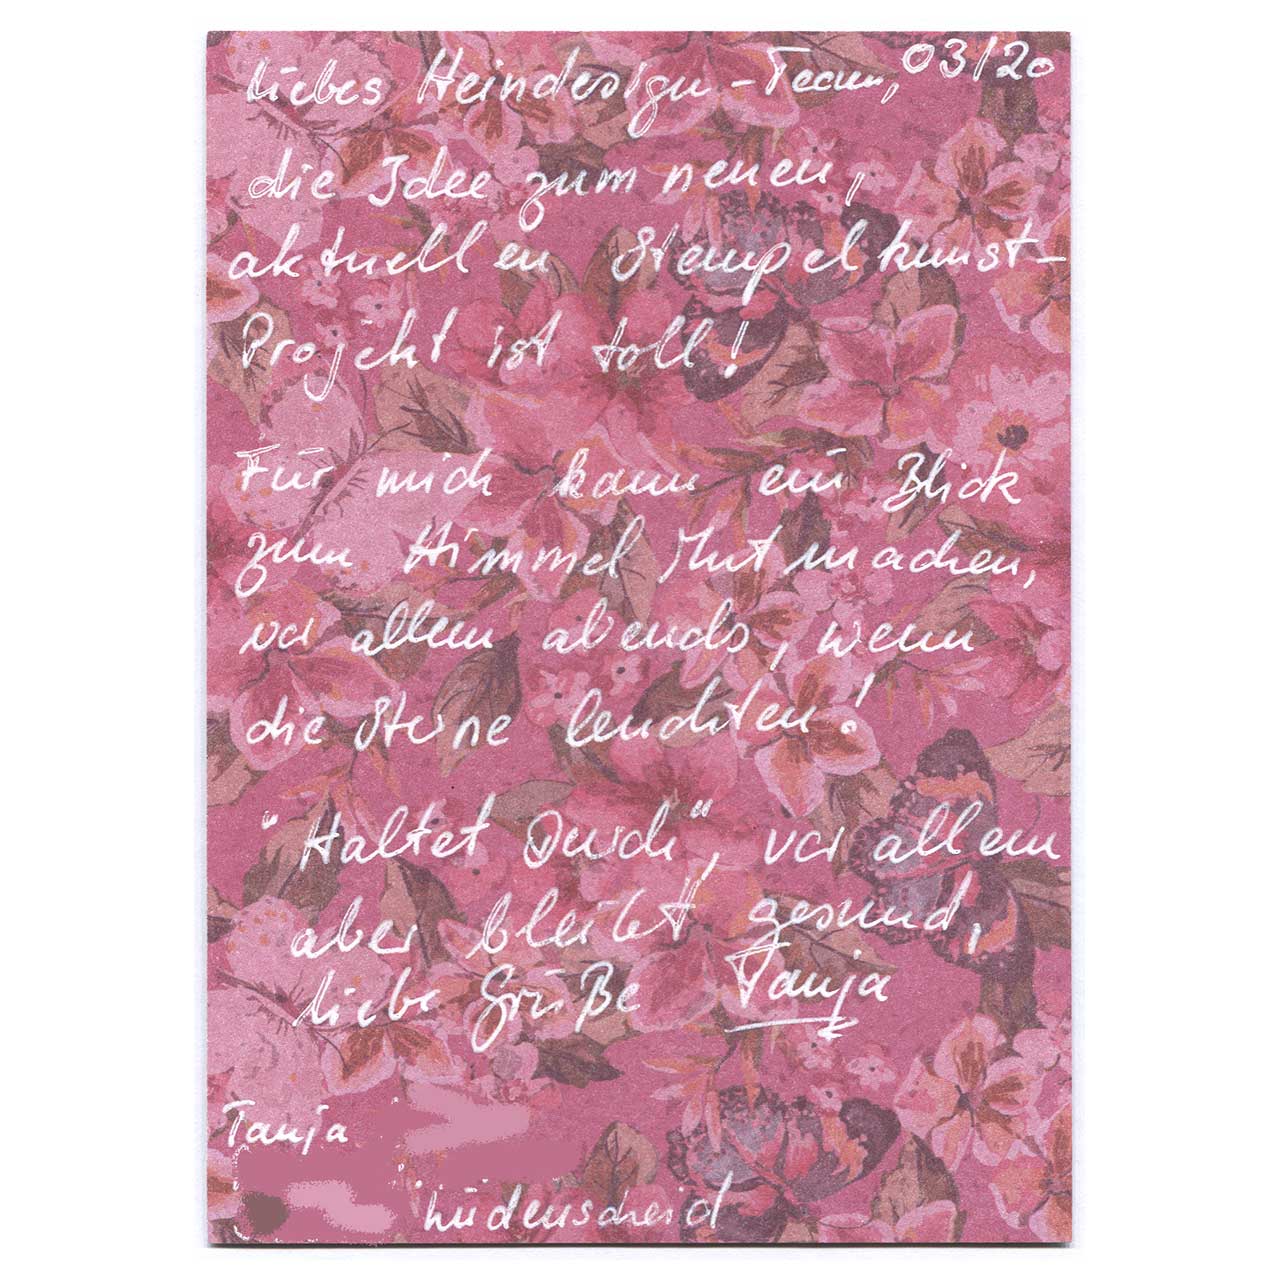 Liebes Heindesign-Team, 03/20
die Idee zum neuen,
aktuellen Stempelkunst-
Projekt ist toll!
Für mich kann ein Blick
zum Himmel Mut machen,
vor allem abends, wenn
die Sterne leuchten!
"Haltet Durch", vor allem
aber bleibt gesund,
liebe Grüße Tanja
Tanja
Lüdenscheid